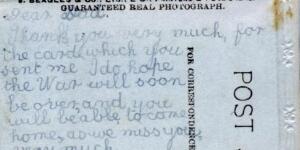 Dear Dad.
GUARANTEED REAL PHOTOGRAPH.
Thank you very much, for
the card which you
sent me I do hope
the War will soon
be over, and you
will be able to come
home, as we miss you
very much
FOR CORRESPONDENCE
POST